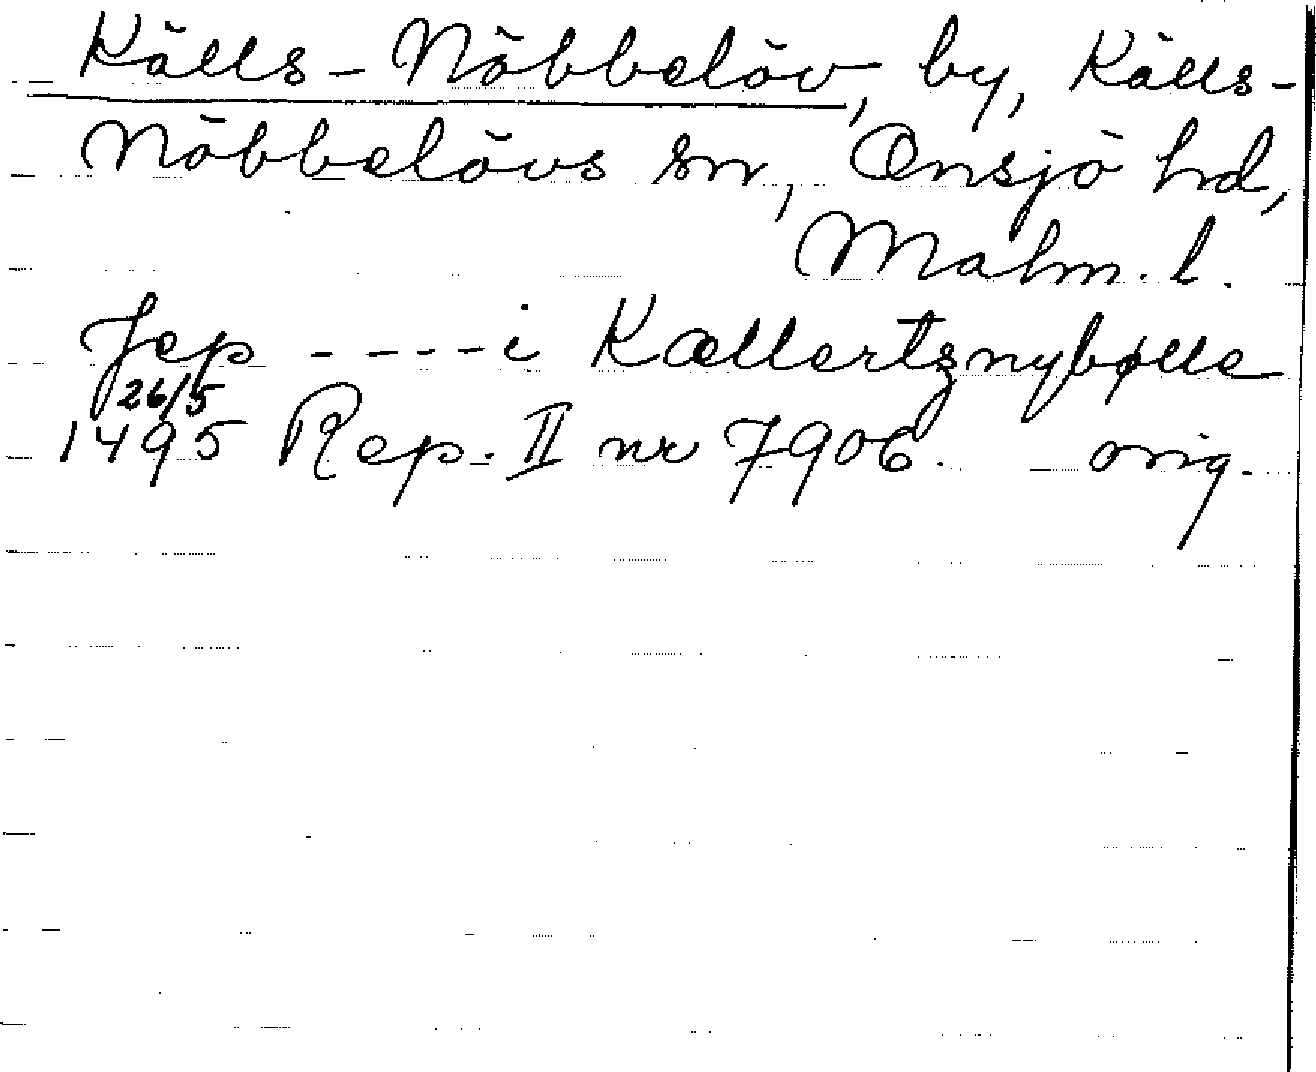 Källs-Nöbbelöv, by, Källs-
Nöbbelövs sn, Onsjö hd,
Malm. l.
Jep ---- i Kællertznybølle
26/5
1495 Rep. II nr 7906. orig.